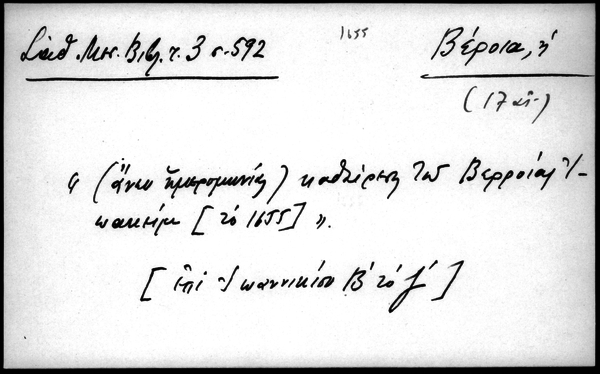 Σάθ. Μεσ. Βιβ. τ. 3 σ. 592
1655
Βέροια, ἡ
(17 αἰ.)
" (ἄνευ ἡμερομηνίας) καθαίρεσις τοῦ Βερροίας Ἰ-
ωακεὶμ [τὸ 1655] ".
[ἐπὶ Ἰωαννικίου Β' τὸ γ']